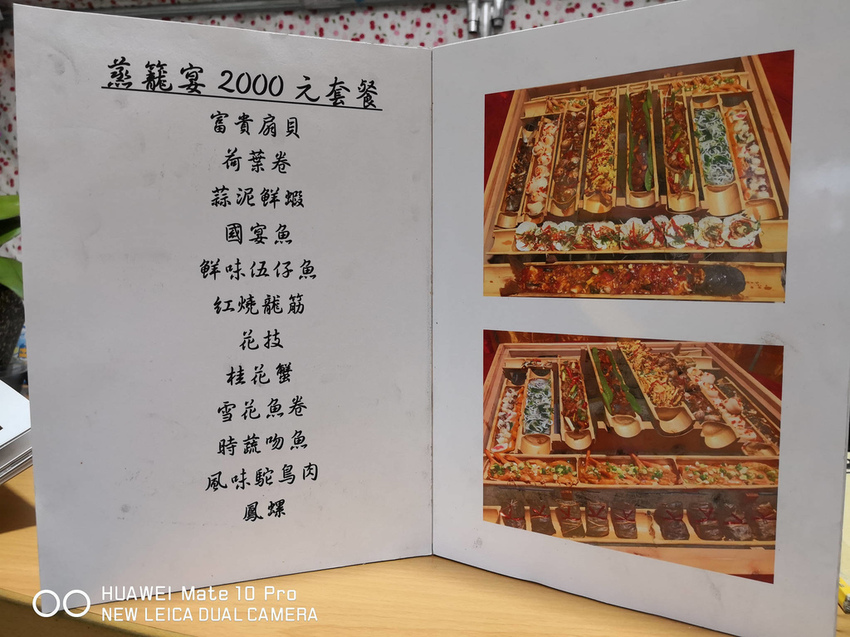 蒸籠宴2000元套餐
富貴扇貝
荷葉卷
蒜泥鮮蝦
國宴魚
鮮味伍仔魚
紅燒龍筋
花技
桂花蟹
雪花魚卷
時蔬吻魚
風味駝鳥肉
鳳螺
HUAWEI Mate 10 Pro
NEW LEICA DUAL CAMERA